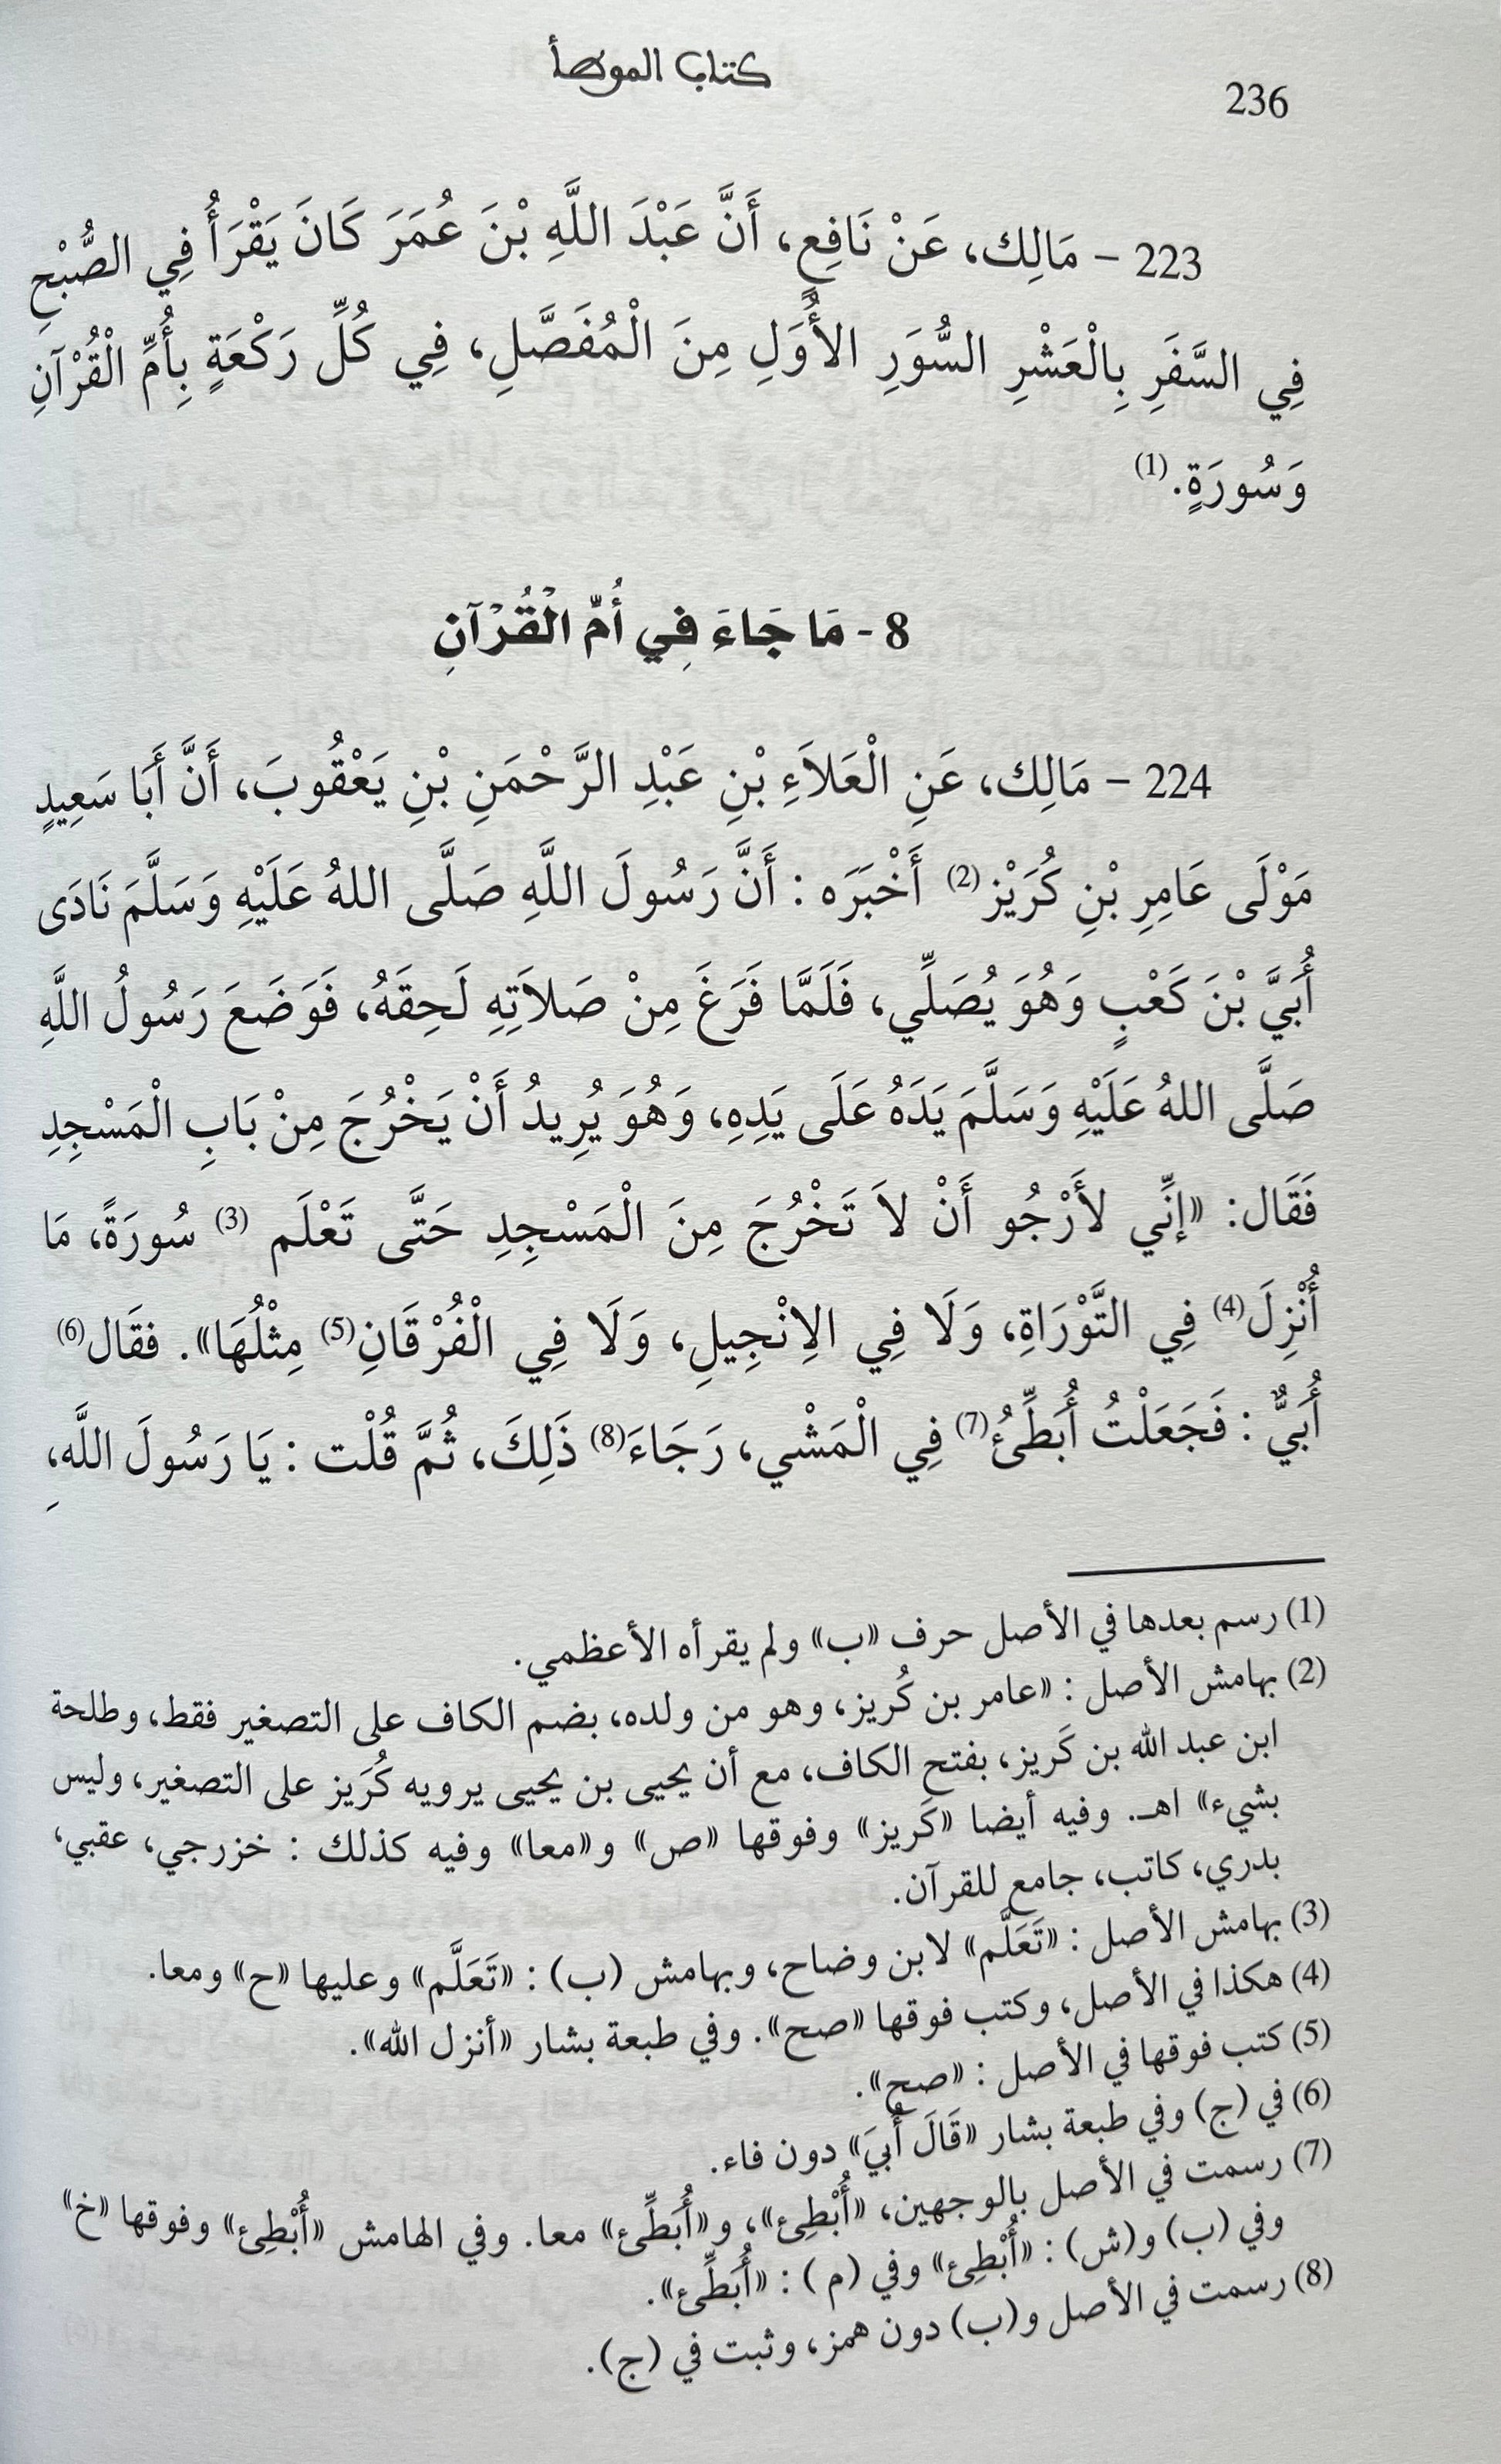 كتاب الموطأ
236
223 – مَالِك، عَنْ نَافِعٍ، أَنَّ عَبْدَ اللَّهِ بْنَ عُمَرَ كَانَ يَقْرَأُ فِي الصُّبْحِ
فِي السَّفَرِ بِالْعَشْرِ السُّوَرِ الأُوَلِ مِنَ الْمُفَصَّلِ، فِي كُلِّ رَكْعَةٍ بِأُمِّ الْقُرْآنِ
وَسُورَةٍ.(1)
8 - مَا جَاءَ فِي أُمِّ الْقُرْآنِ
224 – مَالِك، عَنِ الْعَلاَءِ بْنِ عَبْدِ الرَّحْمَنِ بْنِ يَعْقُوبَ، أَنَّ أَبَا سَعِيدٍ
مَوْلَى عَامِرِ بْنِ كُرَيْز(2) أَخْبَرَه : أَنَّ رَسُولَ اللَّهِ صَلَّى اللهُ عَلَيْهِ وَسَلَّمَ نَادَى
أُبَيَّ بْنَ كَعْبٍ وَهُوَ يُصَلِّي، فَلَمَّا فَرَغَ مِنْ صَلاَتِهِ لَحِقَهُ، فَوَضَعَ رَسُولُ اللَّهِ
صَلَّى اللهُ عَلَيْهِ وَسَلَّمَ يَدَهُ عَلَى يَدِهِ، وَهُوَ يُرِيدُ أَنْ يَخْرُجَ مِنْ بَابِ الْمَسْجِدِ
فَقَال: «إنِّي لأَرْجُو أَنْ لاَ تَخْرُجَ مِنَ الْمَسْجِدِ حَتَّى تَعْلَم (3) سُورَةً، مَا
أُنْزِلَ(4) فِي التَّوْرَاةِ، وَلَا فِي الاِنْجِيلِ، وَلَا فِي الْفُرْقَانِ(5) مِثْلُهَا». فقَال(6)
أُبَيٌّ : فَجَعَلْتُ أُبَطِّئُ(7) فِي الْمَشْي، رَجَاءَ(8) ذَلِكَ، ثُمَّ قُلْت : يَا رَسُولَ اللَّهِ،
(1) رسم بعدها في الأصل حرف «ب» ولم يقرأه الأعظمي.
(2) بهامش الأصل : «عامر بن كُريز، وهو من ولده، بضم الكاف على التصغير فقط، وطلحة
ابن عبد الله بن كَريز، بفتح الكاف، مع أن يحيى بن يحيى يرويه كُرَيز على التصغير، وليس
بشيء» اهـ. وفيه أيضا «كَريز» وفوقها «ص» و«معا» وفيه كذلك : خزرجي، عقبي،
بدري، كاتب، جامع للقرآن.
(3) بهامش الأصل : «تَعَلَّم» لابن وضاح، وبهامش (ب) : «تَعَلَّم» وعليها «ح» ومعا.
(4) هكذا في الأصل، وكتب فوقها «صح». وفي طبعة بشار «أنزل الله».
(5) كتب فوقها في الأصل : «صح».
(6) في (ج) وفي طبعة بشار «قَالَ أُبيَ» دون فاء.
(7) رسمت في الأصل بالوجهين، «أُبْطِئ»، و«أُبَطِّئ» معا. وفي الهامش «أُبْطِئ» وفوقها «خ»
وفي (ب) و(ش) : «أُبْطِئ» وفي (م ) : «أُبَطِّئ».
(8) رسمت في الأصل و(ب) دون همز، وثبت في (ج).